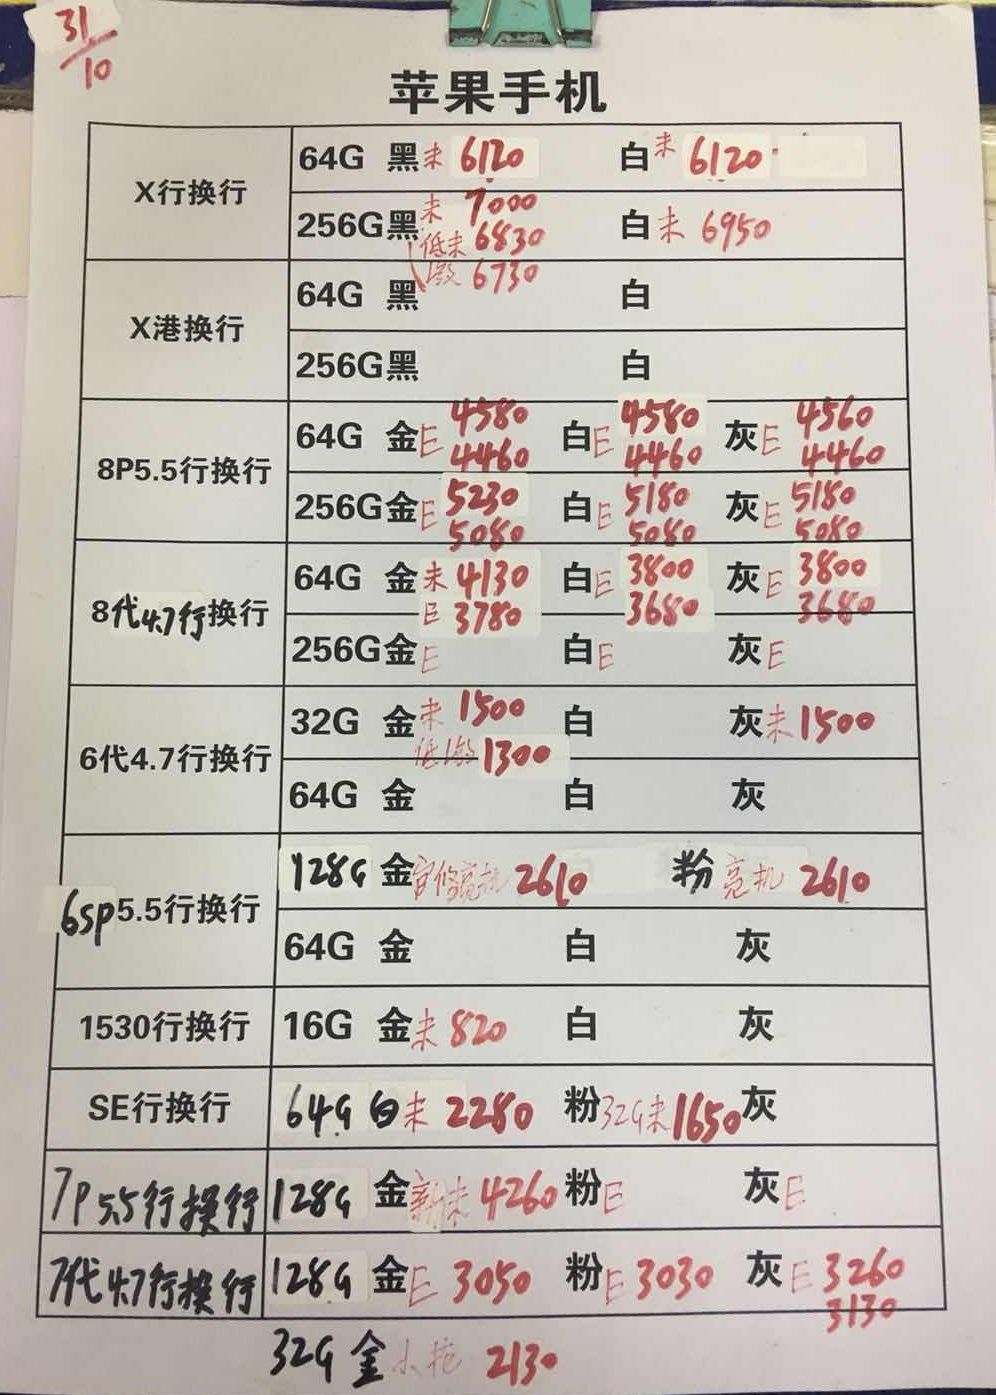 31/10
苹果手机
X行换行
64G 黑未 6120 白未 6120
256G黑未 7000 白未 6950
低未 6830
低激 6730
X港换行
64G 黑 白
256G黑 白
8P5.5行换行
64G 金E 4580 白E 4580 灰E 4560
4460 4460 4460
256G金E 5230 白E 5180 灰E 5180
5080 5080 5080
8代4.7行换行
64G 金未 4130 白E 3800 灰E 3800
E 3780 3680 3680
256G金E 白E 灰E
6代4.7行换行
32G 金未 1500 白 灰未1500
低激1300
64G 金 白 灰
6sp5.5行换行
128G 金官修亮机 2610 粉亮机 2610
64G 金 白 灰
1530行换行
16G 金未 820 白 灰
SE行换行
64G 白未 2280 粉32G未1650灰
7P5.5行换行
128G 金新未 4260 粉E 灰E
7代4.7行换行
128G 金E 3050 粉E 3030 灰E 3260
3130
32G 金 2130